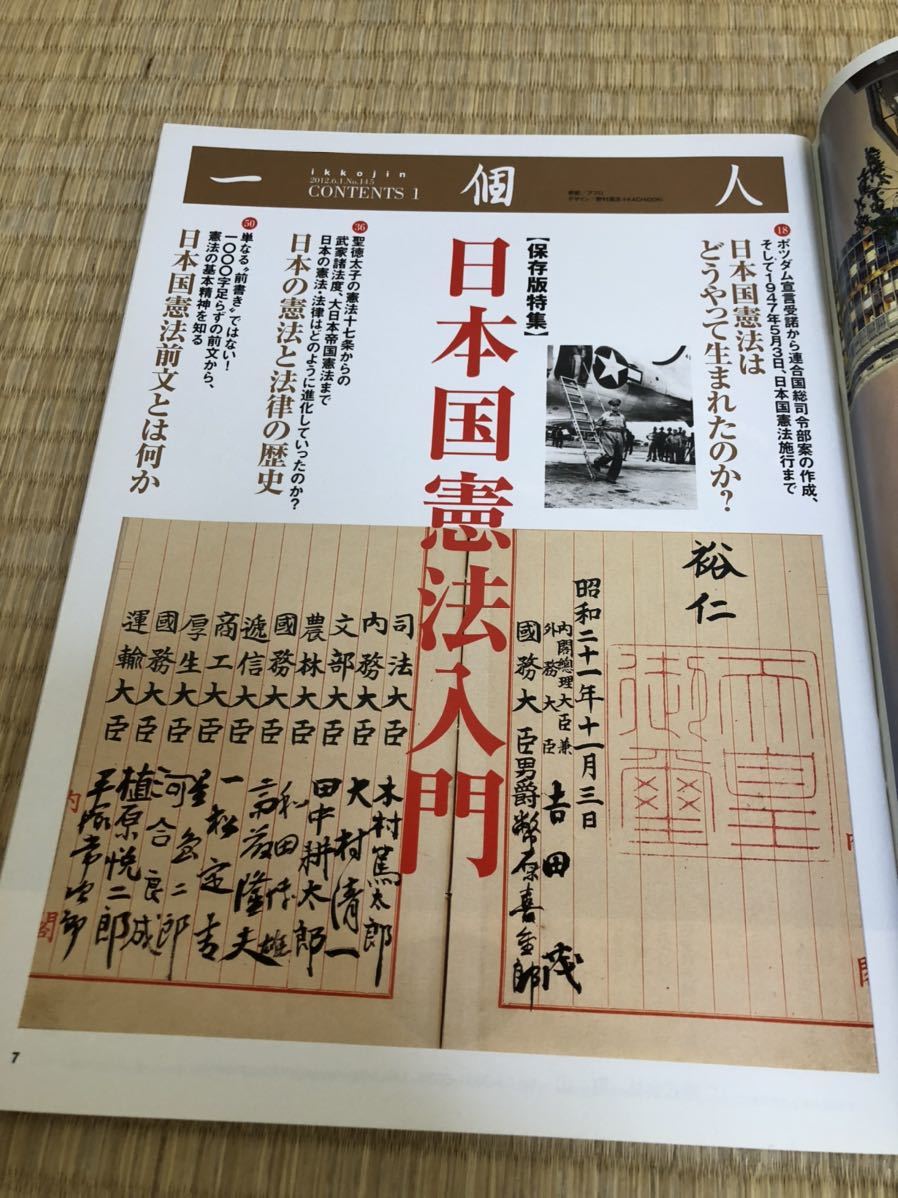 一個人
ikkojin
2012.6.1.No.145
CONTENTS 1
表紙／アフロ
【保存版特集】
日本国憲法入門
18
ポツダム宣言受諾から連合国総司令部案の作成、
そして1947年5月3日、日本国憲法施行まで
日本国憲法は
どうやって生まれたのか?
36
聖徳太子の憲法十七条からの
武家諸法度、大日本帝国憲法まで
日本の憲法・法律はどのように進化していったのか?
日本の憲法と法律の歴史
50
単なる“前書き”ではない!
一〇〇〇字足らずの前文から、
憲法の基本精神を知る
日本国憲法前文とは何か
裕仁
天皇御璽
昭和二十一年十一月三日
内閣總理大臣兼
外務大臣 吉田茂
國務大臣 男爵幣原喜重郎
司法大臣 木村篤太郎
内務大臣 大村清一
文部大臣 田中耕太郎
農林大臣 和田博雄
國務大臣 斎藤隆夫
遞信大臣 一松定吉
商工大臣 星島二郎
厚生大臣 河合良成
國務大臣 植原悦二郎
運輸大臣 平塚常次郎
内
閣
閣
7